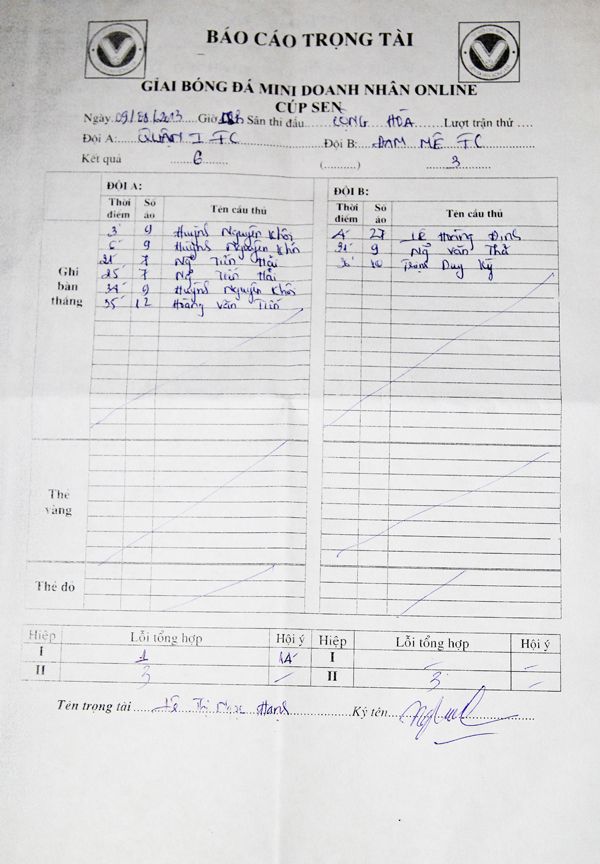 BÁO CÁO TRỌNG TÀI
GIẢI BÓNG ĐÁ MINI DOANH NHÂN ONLINE
CÚP SEN
Ngày Giờ Sân thi đấu CỘNG HÒA Lượt trận thứ ....
Đội A: QUẬN I FC Đội B: ĐAM MÊ FC
Kết quả 6 (..........) 3
ĐỘI A: ĐỘI B:
Thời điểm Số áo Tên cầu thủ Thời điểm Số áo Tên cầu thủ
Ghi bàn thắng
3' 9 Huỳnh Nguyên Khôi 4' 27 Lê Hoàng Định
6' 9 Huỳnh Nguyên Khôi 9 Ngô Văn
21' 7 Ngô Tiến Hải 10 Duy Kỳ
25' 7 Ngô Tiến Hải
34' 9 Huỳnh Nguyên Khôi
35' 12 Hoàng Văn Tiến
Thẻ vàng
Thẻ đỏ
Hiệp Lỗi tổng hợp Hội ý Hiệp Lỗi tổng hợp Hội ý
I 1 14' I -
II 3 - II 3 -
Tên trọng tài Lê Thị Ngọc Hạnh Ký tên